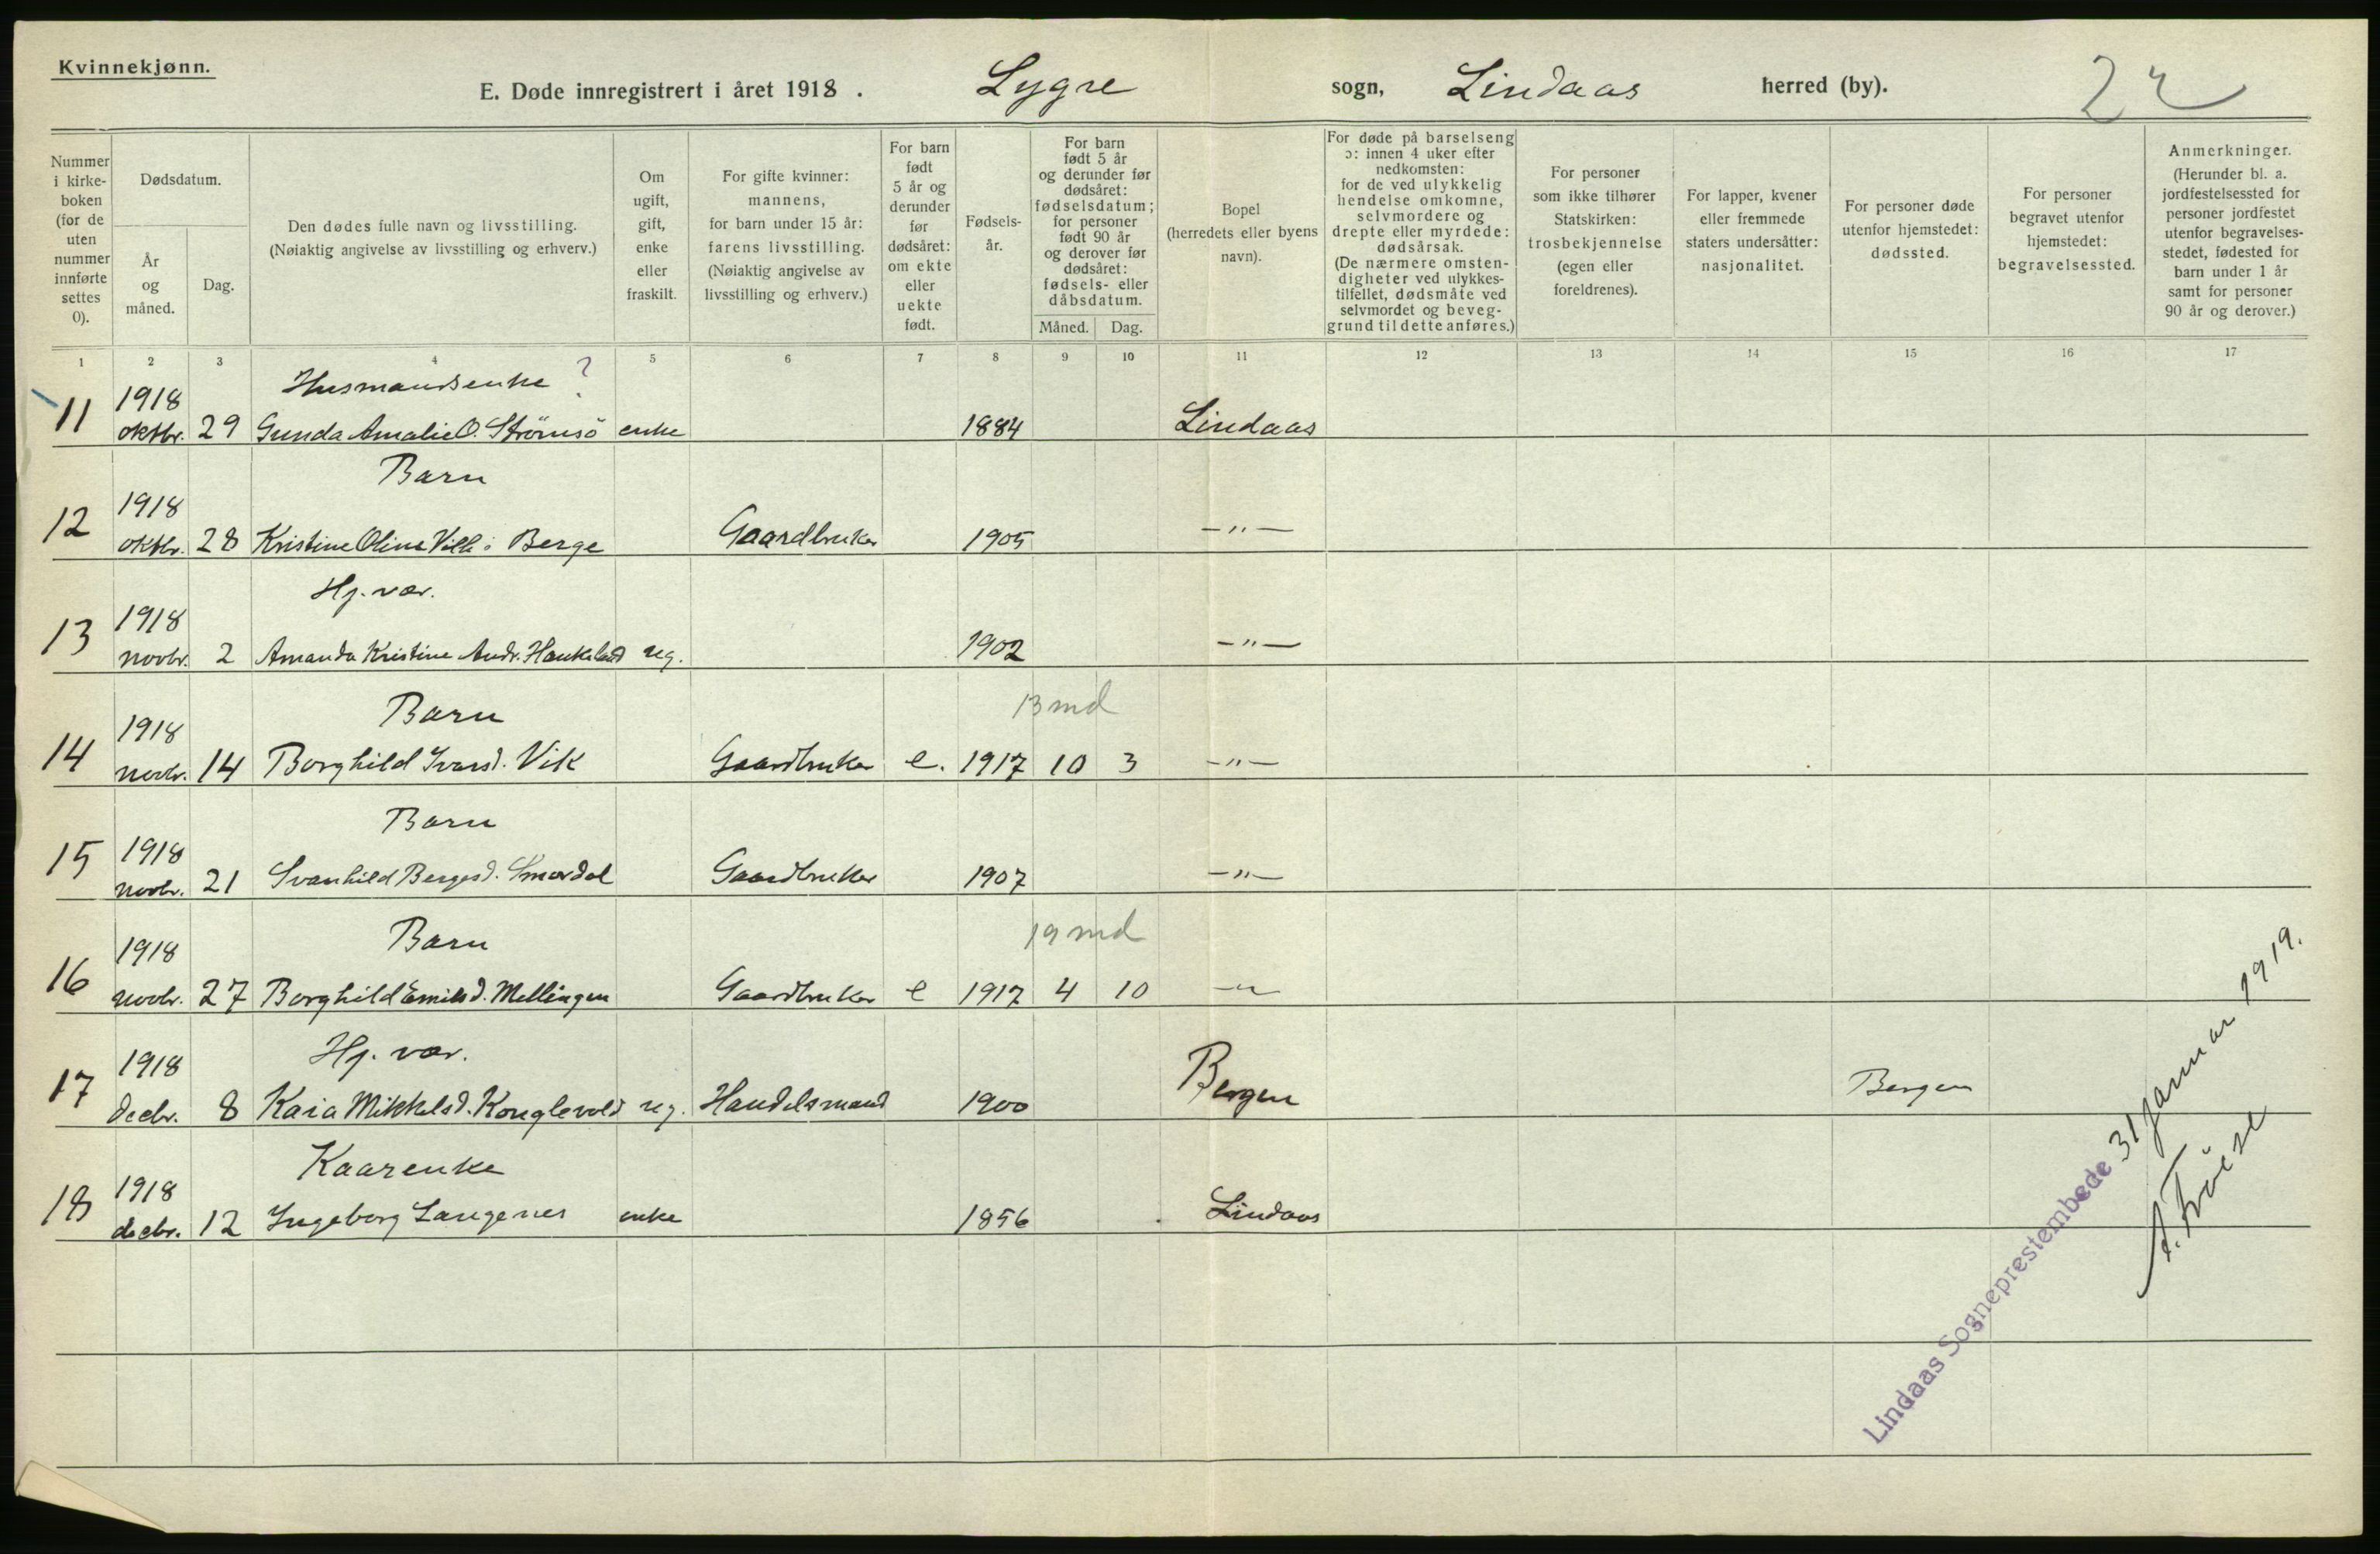 Kvinnekjønn.
E. Døde innregistrert i året 1918. Lygre sogn, Lindaas herred (by). 22
Nummer i kirke-boken (for de uten nummer innførte settes 0).
Dødsdatum.
År og måned.
Dag.
Den dødes fulle navn og livsstilling. (Nøiaktig angivelse av livsstilling og erhverv.)
Om ugift, gift, enke eller fraskilt.
For gifte kvinner: mannens, for barn under 15 år: farens livsstilling. (Nøiaktig angivelse av livsstilling og erhverv.)
For barn født 5 år og derunder før dødsåret: om ekte eller uekte født.
Fødsels-år.
For barn født 5 år og derunder før dødsåret: fødselsdatum; for personer født 90 år og derover før dødsåret: fødsels- eller dåbsdatum.
Måned. Dag.
Bopel (herredets eller byens navn).
For døde på barselseng ɔ: innen 4 uker efter nedkomsten: for de ved ulykkelig hendelse omkomne, selvmordere og drepte eller myrdede: dødsårsak. (De nærmere omsten-digheter ved ulykkes-tilfellet, dødsmåte ved selvmordet og beveg-grund til dette anføres.)
For personer som ikke tilhører Statskirken: trosbekjennelse (egen eller foreldrenes).
For lapper, kvener eller fremmede staters undersåtter: nasjonalitet.
For personer døde utenfor hjemstedet: dødssted.
For personer begravet utenfor hjemstedet: begravelsessted.
Anmerkninger. (Herunder bl. a. jordfestelsessted for personer jordfestet utenfor begravelses-stedet, fødested for barn under 1 år samt for personer 90 år og derover.)
1 2 3 4 5 6 7 8 9 10 11 12 13 14 15 16 17
1918 Husmandsenke ?
11 oktbr. 29 Gunda Amalie O. Strömsö enke 1884 Lindaas
1918 Barn
12 oktbr. 28 Kristine Oline Berge Gaardbruker 1905 -"-
1918 Hj. vær.
13 novbr. 2 Amanda Kristine Andr. Haukeland ug. 1902 -"-
1918 Barn 13 md
14 novbr. 14 Borghild Ivarsd. Vik Gaardbruker e. 1917 10 3 -"-
1918 Barn
15 novbr. 21 Svanhild Bergesd. Smørdal Gaardbruker 1907 -"-
1918 Barn 19 md
16 novbr. 27 Borghild Emilsd. Mellingen Gaardbruker e 1917 4 10 -"-
1918 Hj. vær.
17 decbr. 8 Kaia Mikkelsd. Konglevold ug. Handelsmand 1900 Bergen Bergen
1918 Kaarenke
18 decbr. 12 Ingeborg Langenes enke 1856 Lindaas
Lindaas Sogneprestembede 31 januar 1919.